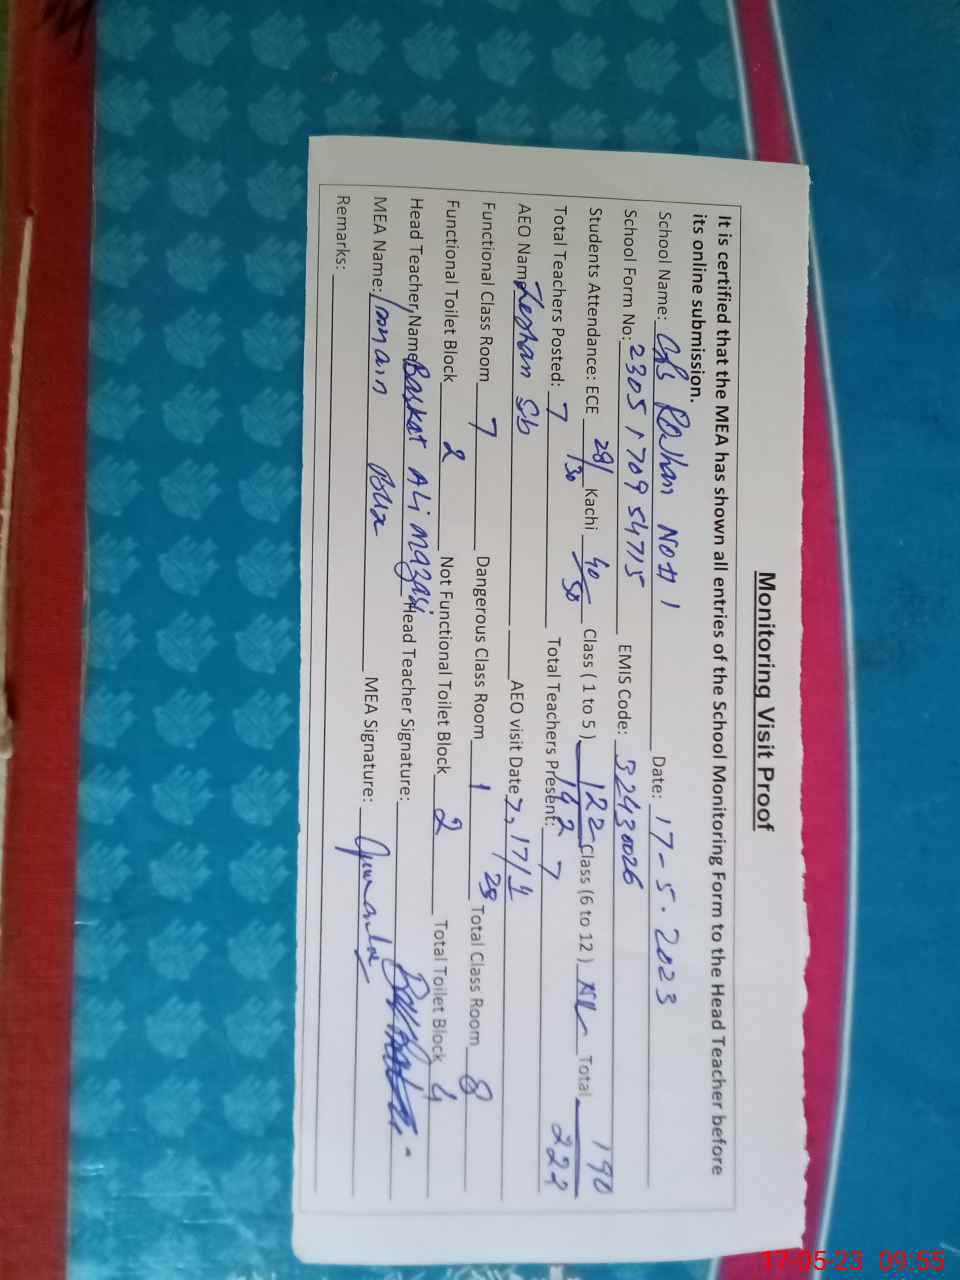 Monitoring Visit Proof
It is certified that the MEA has shown all entries of the School Monitoring Form to the Head Teacher before
its online submission.
School Name: GPS Rojhan No # 1 Date: 17-5-2023
School Form No: 2305170954715 EMIS Code: 32430026
Students Attendance: ECE 28/30 Kachi 40/50 Class ( 1 to 5 ) 122/142 Class (6 to 12 ) NIL Total 190/222
Total Teachers Posted: 7 Total Teachers Present: 7
AEO Name Zeshan Sb AEO visit Date 7, 17/4
Functional Class Room 7 Dangerous Class Room 1 Total Class Room 8
Functional Toilet Block 2 Not Functional Toilet Block 2 Total Toilet Block 4
Head Teacher Name Barkat Ali Mazari Head Teacher Signature:
MEA Name: Imam Bux MEA Signature:
Remarks:
17-05-23 09:55